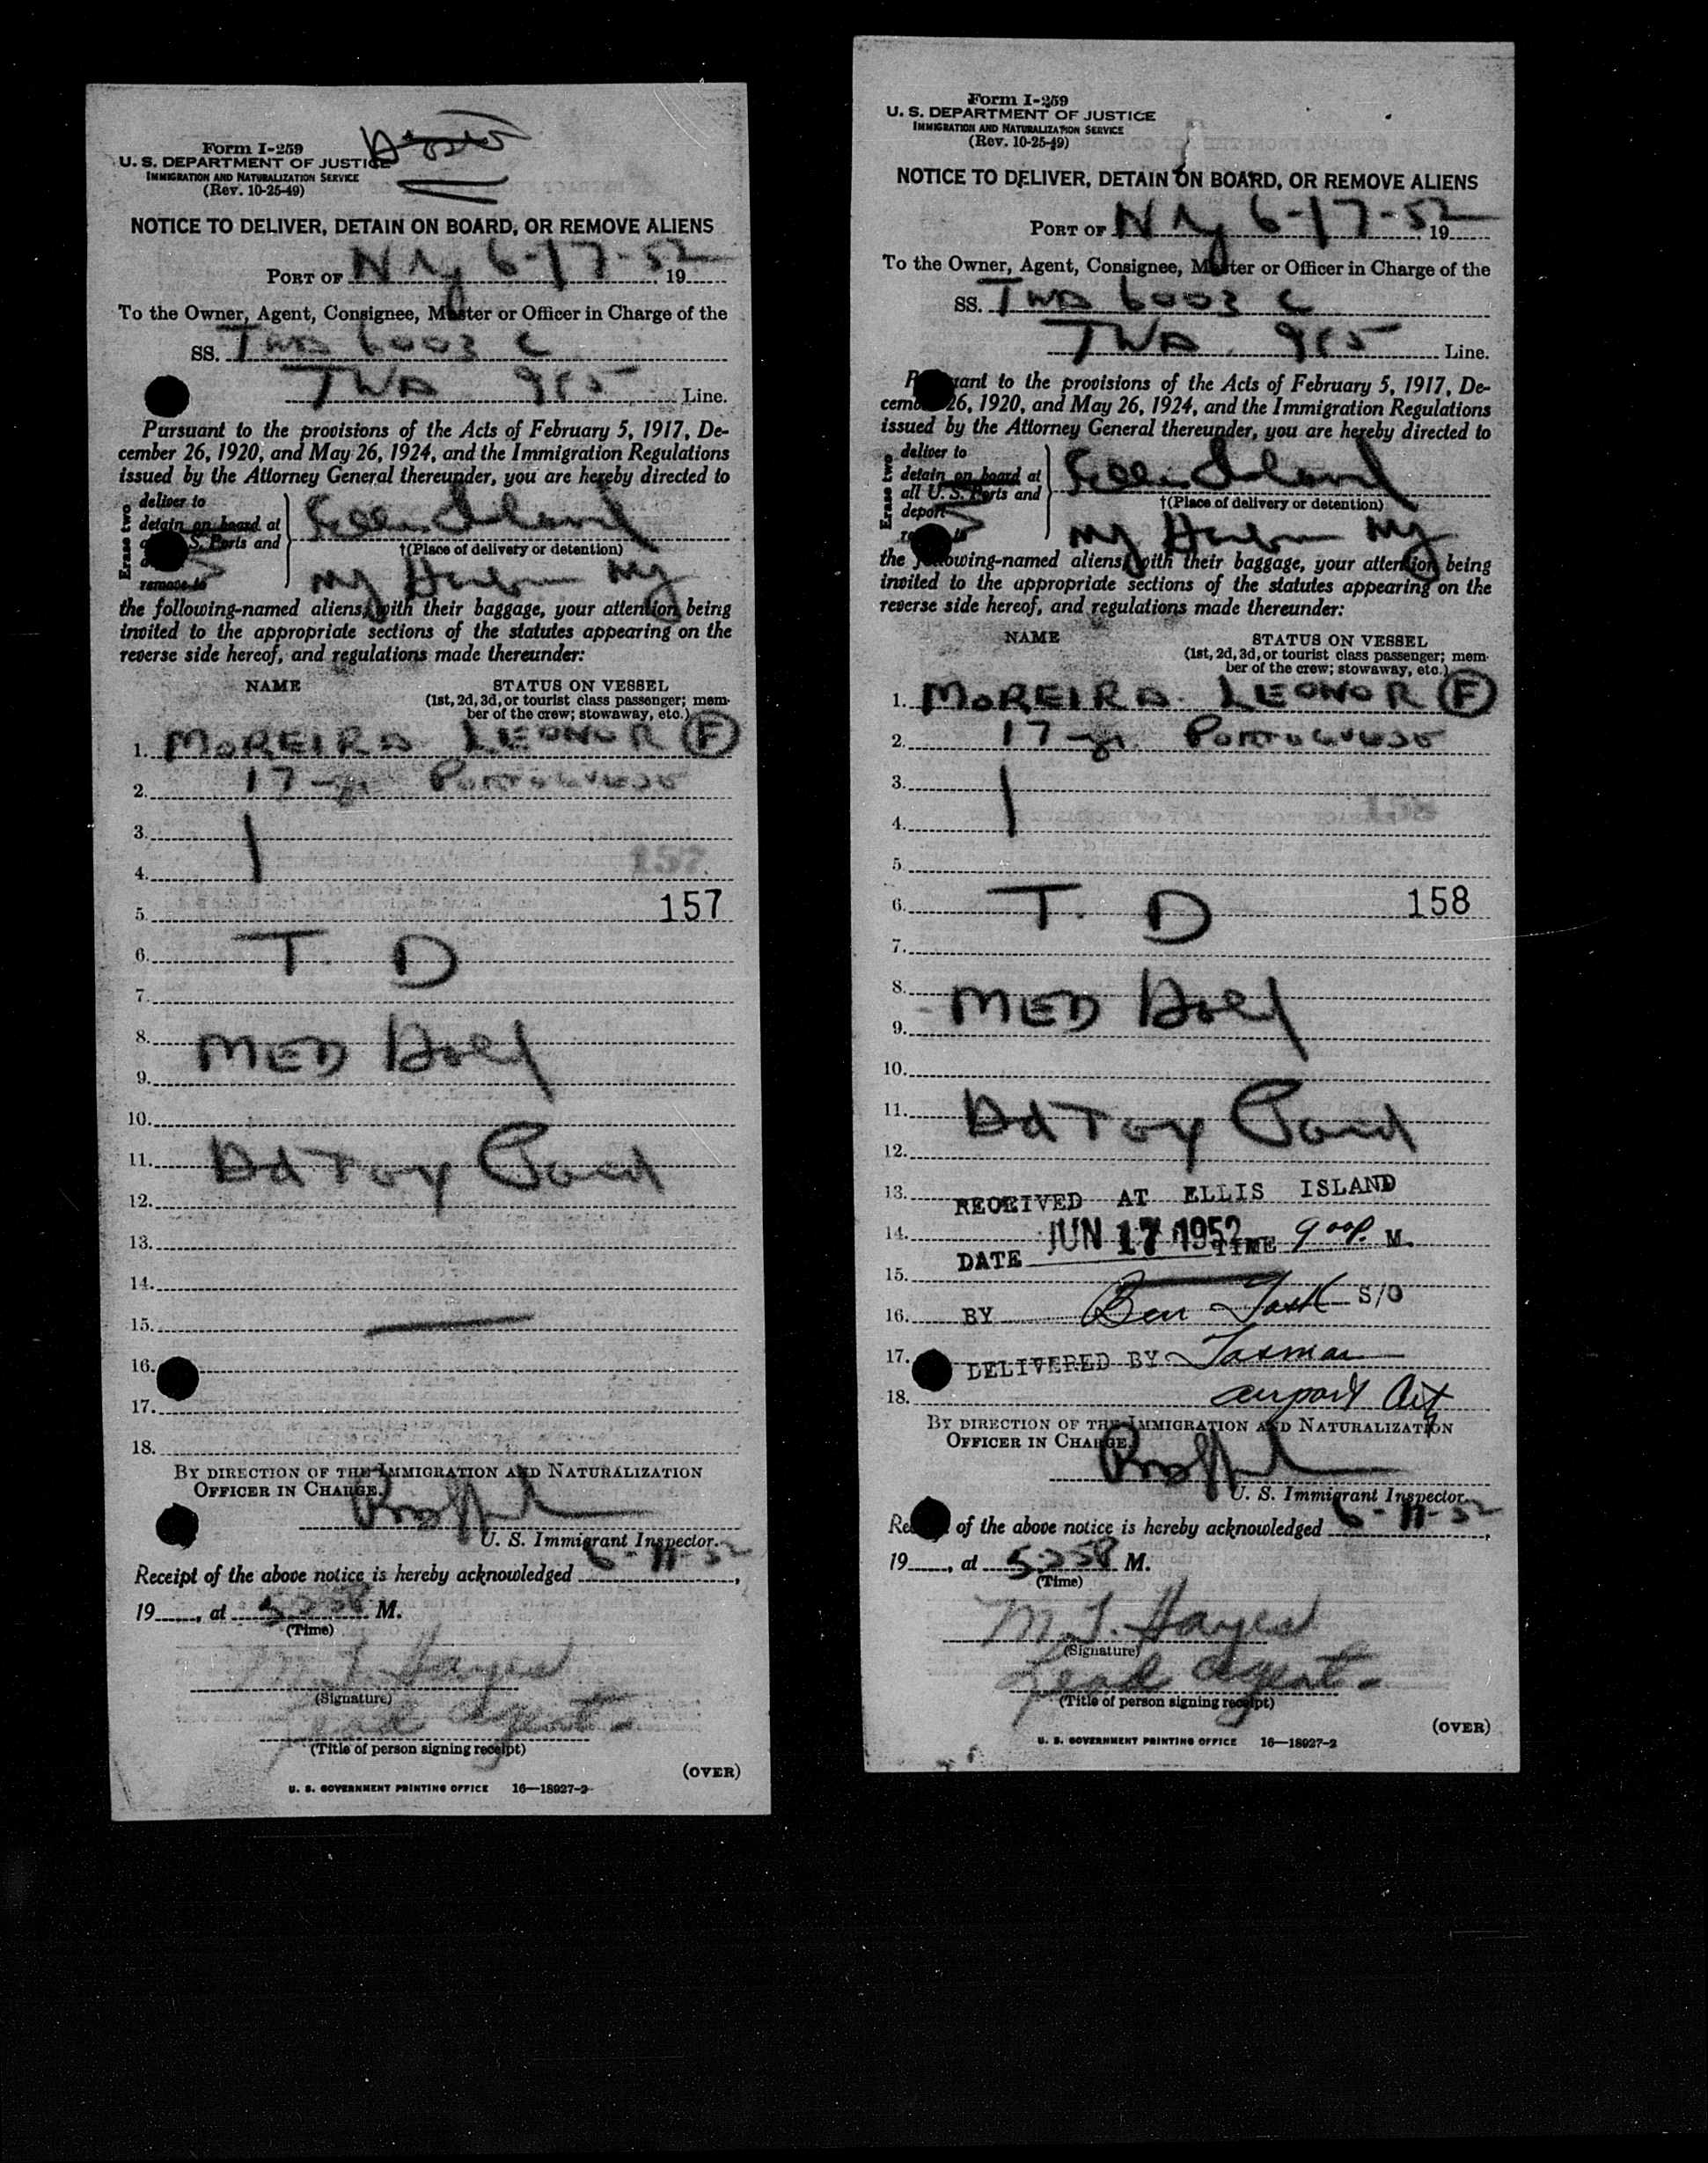 Form I-259
U. S. DEPARTMENT OF JUSTICE
IMMIGRATION AND NATURALIZATION SERVICE
(Rev. 10-25-49)
NOTICE TO DELIVER, DETAIN ON BOARD, OR REMOVE ALIENS
PORT OF N Y 6-17-52 19
To the Owner, Agent, Consignee, Master or Officer in Charge of the
SS. TWA 6003 C
TWA 955 Line.
Pursuant to the provisions of the Acts of February 5, 1917, De-
cember 26, 1920, and May 26, 1924, and the Immigration Regulations
issued by the Attorney General thereunder, you are hereby directed to
Erase two
deliver to
detain on board at
S. Ports and
remove to
Ellis Island
†(Place of delivery or detention)
NY Harbor NY
the following-named aliens, with their baggage, your attention being
invited to the appropriate sections of the statutes appearing on the
reverse side hereof, and regulations made thereunder:
NAME STATUS ON VESSEL
(1st, 2d, 3d, or tourist class passenger; mem-
ber of the crew; stowaway, etc.)
1. MOREIRA LEONOR (F)
2. 17 yr. PORTUGUESE
3.
4. 157
5. 157
6. T. D
7.
8. MED Hold
9.
10.
11.
12.
13.
14.
15.
16.
17.
18.
BY DIRECTION OF THE IMMIGRATION AND NATURALIZATION
OFFICER IN CHARGE.
U. S. Immigrant Inspector.
Receipt of the above notice is hereby acknowledged 6-17-52,
19, at M.
(Time)
M. J. Hayes
(Signature)
Lead Agent.
(Title of person signing receipt)
(OVER)
U. S. GOVERNMENT PRINTING OFFICE 16—18927-2
Form I-259
U. S. DEPARTMENT OF JUSTICE
IMMIGRATION AND NATURALIZATION SERVICE
(Rev. 10-25-49)
NOTICE TO DELIVER, DETAIN ON BOARD, OR REMOVE ALIENS
PORT OF N Y 6-17-52 19
To the Owner, Agent, Consignee, Master or Officer in Charge of the
SS. TWA 6003 C
TWA 955 Line.
Pursuant to the provisions of the Acts of February 5, 1917, De-
cember 26, 1920, and May 26, 1924, and the Immigration Regulations
issued by the Attorney General thereunder, you are hereby directed to
Erase two
deliver to
detain on board at
all U. S. Ports and
deport
Ellis Island
†(Place of delivery or detention)
NY Harbor NY
the following-named aliens, with their baggage, your attention being
invited to the appropriate sections of the statutes appearing on the
reverse side hereof, and regulations made thereunder:
NAME STATUS ON VESSEL
(1st, 2d, 3d, or tourist class passenger; mem-
ber of the crew; stowaway, etc.)
1. MOREIRA LEONOR (F)
2. 17 yr. PORTUGUESE
3.
158
4.
5.
6. T. D 158
7.
8. MED Hold
9.
10.
11.
12.
13. RECEIVED AT ELLIS ISLAND
14. DATE JUN 17 1952 TIME 9 00 P. M.
15.
16. BY Ben S/O
17. DELIVERED BY
18. airport
BY DIRECTION OF THE IMMIGRATION AND NATURALIZATION
OFFICER IN CHARGE.
U. S. Immigrant Inspector.
Receipt of the above notice is hereby acknowledged 6-17-52,
19, at M.
(Time)
M. J. Hayes
(Signature)
Lead Agent.
(Title of person signing receipt)
(OVER)
U. S. GOVERNMENT PRINTING OFFICE 16—18927-2